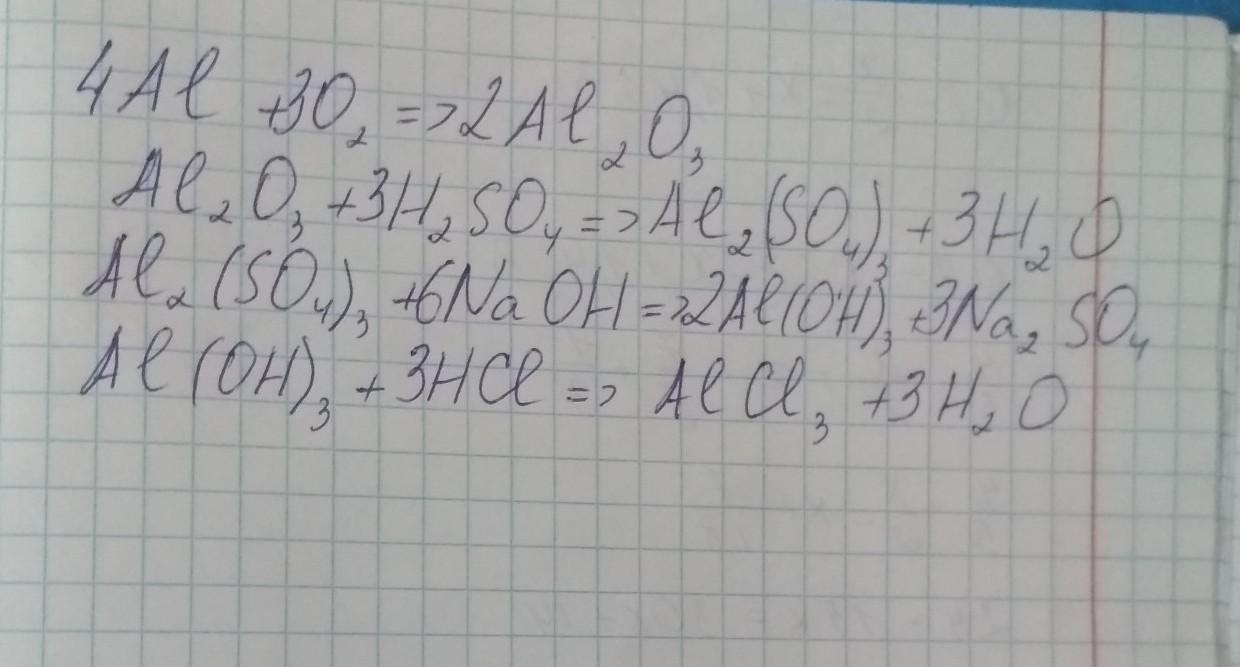 4Al +3O₂ => 2Al₂O₃
Al₂O₃ +3H₂SO₄ => Al₂(SO₄)₃ +3H₂O
Al₂(SO₄)₃ +6NaOH => 2Al(OH)₃ +3Na₂SO₄
Al(OH)₃ +3HCl => AlCl₃ +3H₂O